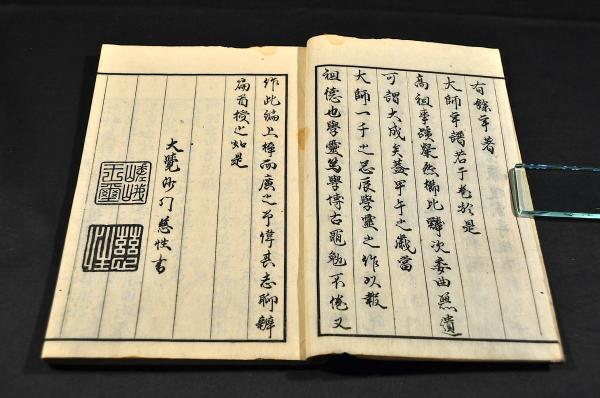 有餘年著
大師年譜若干卷於是
高祖事蹟粲然櫛比次委曲無遺
可謂大成矣蓋甲午之歲當
大師一千之忌辰學靈之作以報
祖德也學靈篤學博古黽勉不倦又
作此編上梓而廣之予偉其志聊辨
扁首授之如是
大覺沙門慈性書
嵯峨
慈性